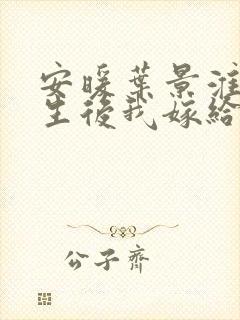 安暖葉景淮
生後我嫁給
公子齊